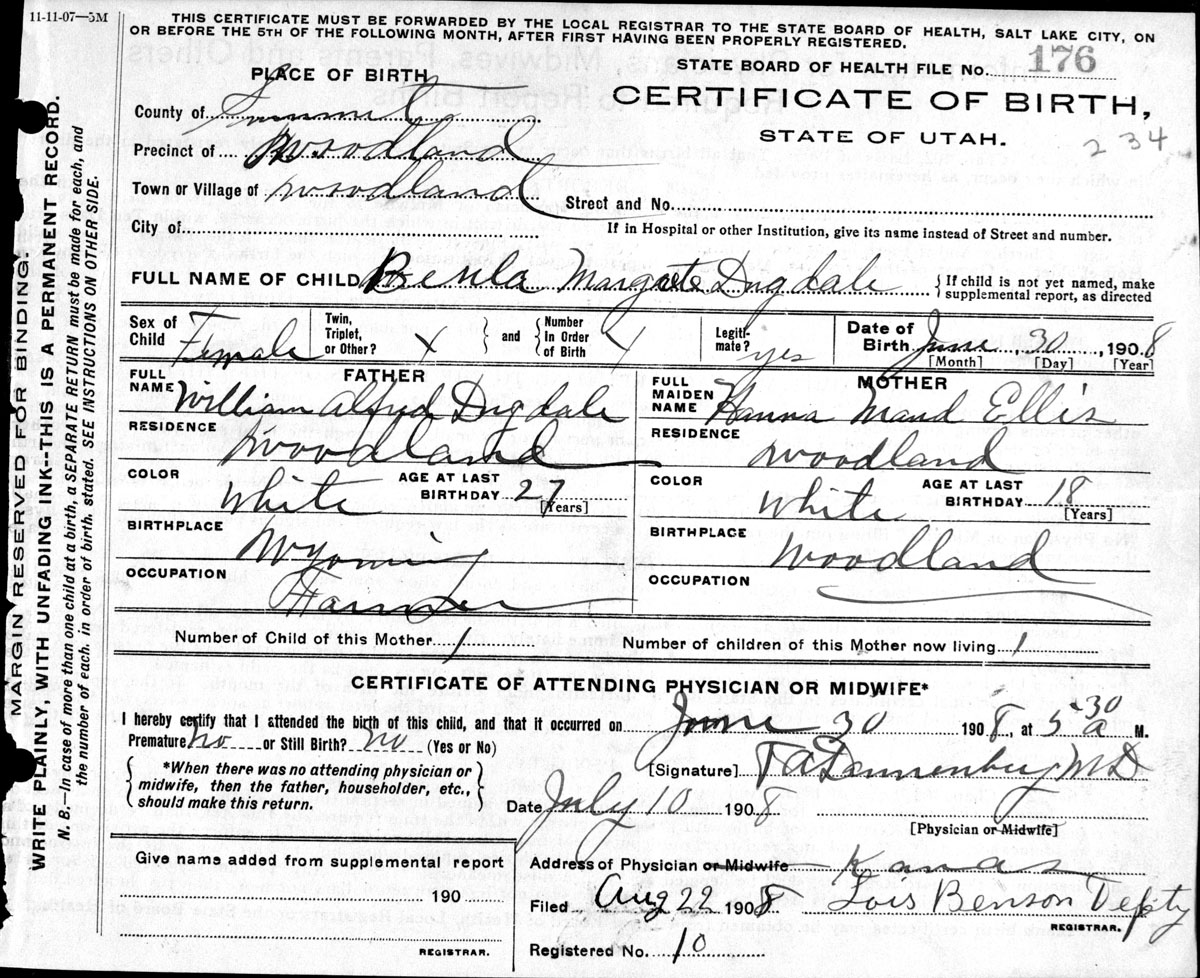 11-11-07—5M
THIS CERTIFICATE MUST BE FORWARDED BY THE LOCAL REGISTRAR TO THE STATE BOARD OF HEALTH, SALT LAKE CITY, ON
OR BEFORE THE 5TH OF THE FOLLOWING MONTH, AFTER FIRST HAVING BEEN PROPERLY REGISTERED.
STATE BOARD OF HEALTH FILE No. 176
PLACE OF BIRTH
CERTIFICATE OF BIRTH,
STATE OF UTAH.
234
County of Summit
Precinct of Woodland
Town or Village of Woodland
Street and No.
City of
If in Hospital or other Institution, give its name instead of Street and number.
FULL NAME OF CHILD Beula Margrete Dugdale { If child is not yet named, make supplemental report, as directed
Sex of Child Female
Twin, Triplet, or Other? x } and { Number In Order of Birth
Legitimate? yes
Date of Birth June 30, 1908
[Month] [Day] [Year]
FATHER
FULL NAME William Alfred Dugdale
RESIDENCE Woodland
COLOR White AGE AT LAST BIRTHDAY 27 [Years]
BIRTHPLACE Wyoming
OCCUPATION Farmer
MOTHER
FULL MAIDEN NAME Hanna Maud Ellis
RESIDENCE Woodland
COLOR White AGE AT LAST BIRTHDAY 18 [Years]
BIRTHPLACE Woodland
OCCUPATION
Number of Child of this Mother 1
Number of children of this Mother now living 1
CERTIFICATE OF ATTENDING PHYSICIAN OR MIDWIFE*
I hereby certify that I attended the birth of this child, and that it occurred on June 30 1908, at 5-30 a M.
Premature? No or Still Birth? No (Yes or No)
{ *When there was no attending physician or midwife, then the father, householder, etc., should make this return. }
[Signature] T A Dannenberg MD
Date July 10 1908
[Physician or Midwife]
Give name added from supplemental report
190
REGISTRAR.
Address of Physician or Midwife Kamas
Filed Aug 22 1908 Lois Benson Depty
REGISTRAR.
Registered No. 10
MARGIN RESERVED FOR BINDING.
WRITE PLAINLY, WITH UNFADING INK---THIS IS A PERMANENT RECORD.
N. B.—In case of more than one child at a birth, a SEPARATE RETURN must be made for each, and
the number of each, in order of birth, stated. SEE INSTRUCTIONS ON OTHER SIDE.